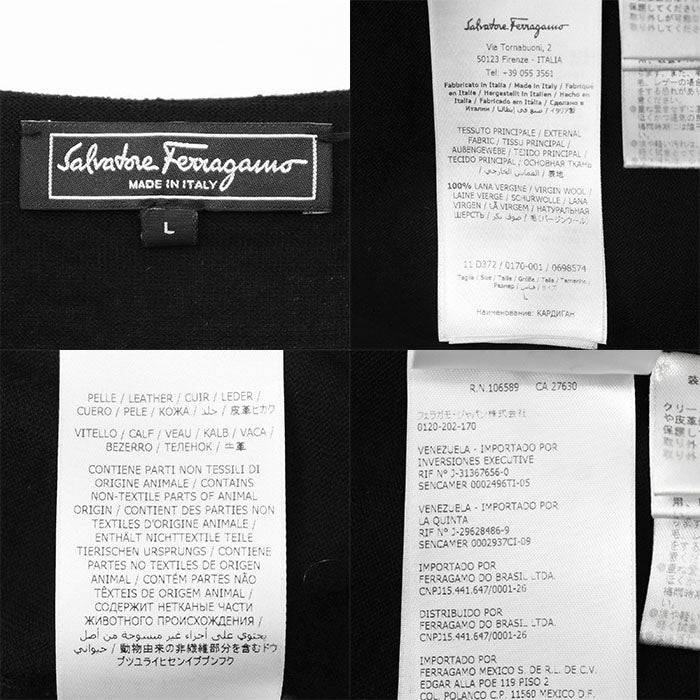 Salvatore Ferragamo
MADE IN ITALY
L
Salvatore Ferragamo
Via Tornabuoni, 2
50123 Firenze - ITALIA
Tel: +39 055 3561
Fabbricato in Italia / Made in Italy / Fabriqué
en Italie / Hergestellt in Italien / Hecho en
Italia / Fabricado em Itália / Сделано в
Италии / صنع في إيطاليا / イタリア製
TESSUTO PRINCIPALE / EXTERNAL
FABRIC / TISSU PRINCIPAL /
AUßENGEWEBE / TEJIDO PRINCIPAL /
TECIDO PRINCIPAL / ОСНОВНАЯ ТКАНЬ
/ القماس الخارجي / 表地
100% LANA VERGINE / VIRGIN WOOL /
LAINE VIERGE / SCHURWOLLE / LANA
VIRGEN / LÃ VIRGEM / НАТУРАЛЬНАЯ
ШЕРСТЬ / صوف بكر / 毛(バージンウール)
11 D372 / 0170-001 / 0698574
Taglia / Size / Taille / Größe / Talla / Tamanho /
Размер / قياس / サイズ
L
Наименование: КАРДИГАН
PELLE / LEATHER / CUIR / LEDER /
CUERO / PELE / КОЖА / جلد / 皮革ヒカク
VITELLO / CALF / VEAU / KALB / VACA /
BEZERRO / ТЕЛЕНОК / 牛革
CONTIENE PARTI NON TESSILI DI
ORIGINE ANIMALE / CONTAINS
NON-TEXTILE PARTS OF ANIMAL
ORIGIN / CONTIENT DES PARTIES NON
TEXTILES D'ORIGINE ANIMALE /
ENTHÄLT NICHTTEXTILE TEILE
TIERISCHEN URSPRUNGS / CONTIENE
PARTES NO TEXTILES DE ORIGEN
ANIMAL / CONTÉM PARTES NÃO
TÊXTEIS DE ORIGEM ANIMAL /
СОДЕРЖИТ НЕТКАНЫЕ ЧАСТИ
ЖИВОТНОГО ПРОИСХОЖДЕНИЯ /
يحتوي على أجزاء غير منسوجة من أصل
حيواني / 動物由来の非繊維部分を含むドウ
ブツユライヒセンイブブンフク
R.N.106589 CA 27630
フェラガモ・ジャパン株式会社
0120-202-170
VENEZUELA - IMPORTADO POR
INVERSIONES EXECUTIVE
RIF Nº J-31367656-0
SENCAMER 0002496TI-05
VENEZUELA - IMPORTADO POR
LA QUINTA
RIF Nº J-29628486-9
SENCAMER 0002937CI-09
IMPORTADO POR
FERRAGAMO DO BRASIL LTDA.
CNPJ15.441.647/0001-26
DISTRIBUIDO POR
FERRAGAMO DO BRASIL LTDA.
CNPJ15.441.647/0001-26
IMPORTADO POR
FERRAGAMO MEXICO S. DE R.L. DE C.V.
EDGAR ALLA POE 119 PISO 2
COL. POLANCO C.P. 11560 D.F. MEXICO